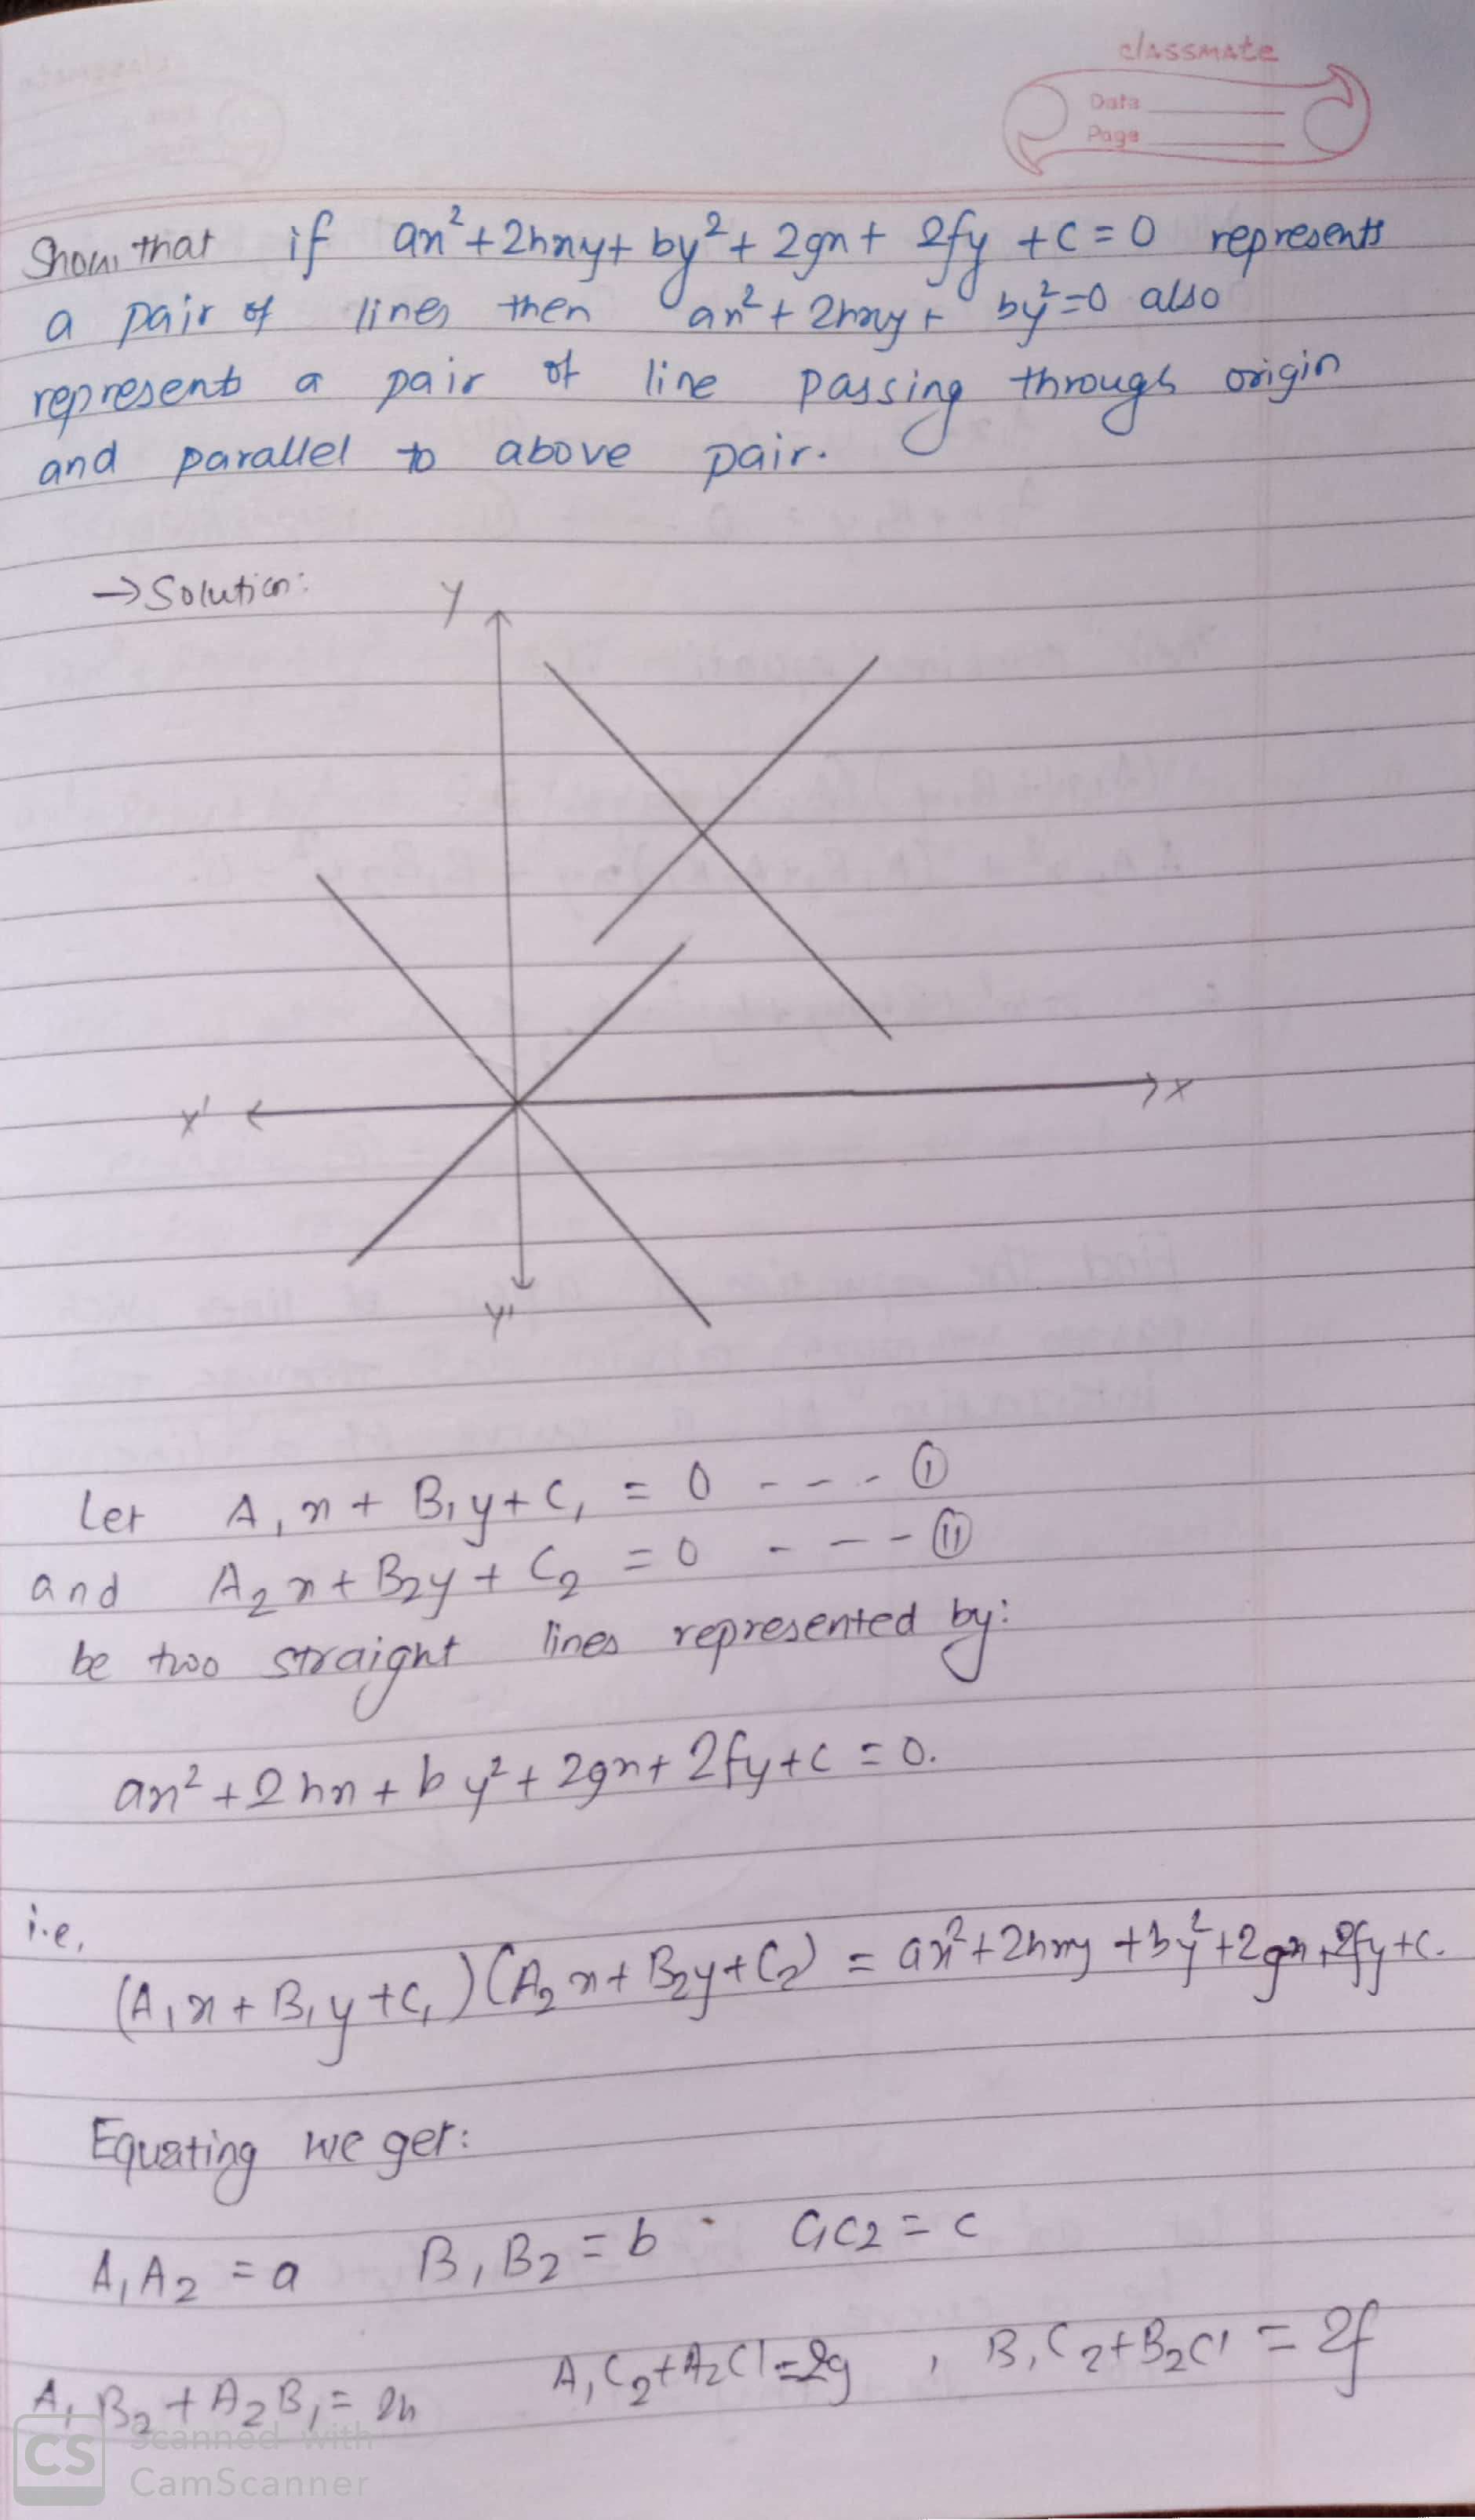 classmate
Date
Page
Show that if ax²+2hxy+ by²+ 2gx+ 2fy +c=0 represents
a pair of lines then ax²+ 2hxy+ by²=0 also
represents a pair of line passing through origin
and parallel to above pair.
→ Solution:
Y
X' X
Y'
Let A₁x + B₁y+C₁ = 0 - - - - (i)
and A₂x+B₂y+C₂ = 0 - - - - (ii)
be two straight lines represented by:
ax²+2hx+by²+2gx+2fy+c=0.
i.e,
(A₁x+B₁y+C₁)(A₂x+B₂y+C₂) = ax²+2hxy+by²+2gx+2fy+c.
Equating we get:
A₁A₂ = a B₁B₂ = b C₁C2 = c
A₁B₂+A₂B₁= 2h A₁C₂+A₂C1=2g , B₁C₂+B₂C1 = 2f
CS Scanned with
CamScanner